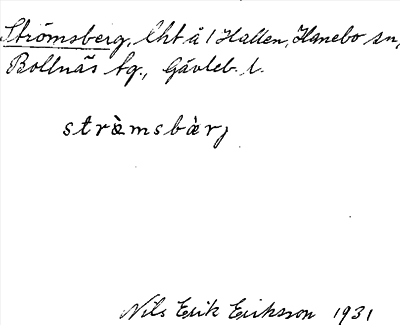 Strömsberg, lht å 1 Hallen, Hanebo sn,
Bollnäs tg., Gävleb. l.
stròmsbàrj
Nils Erik Eriksson 1931